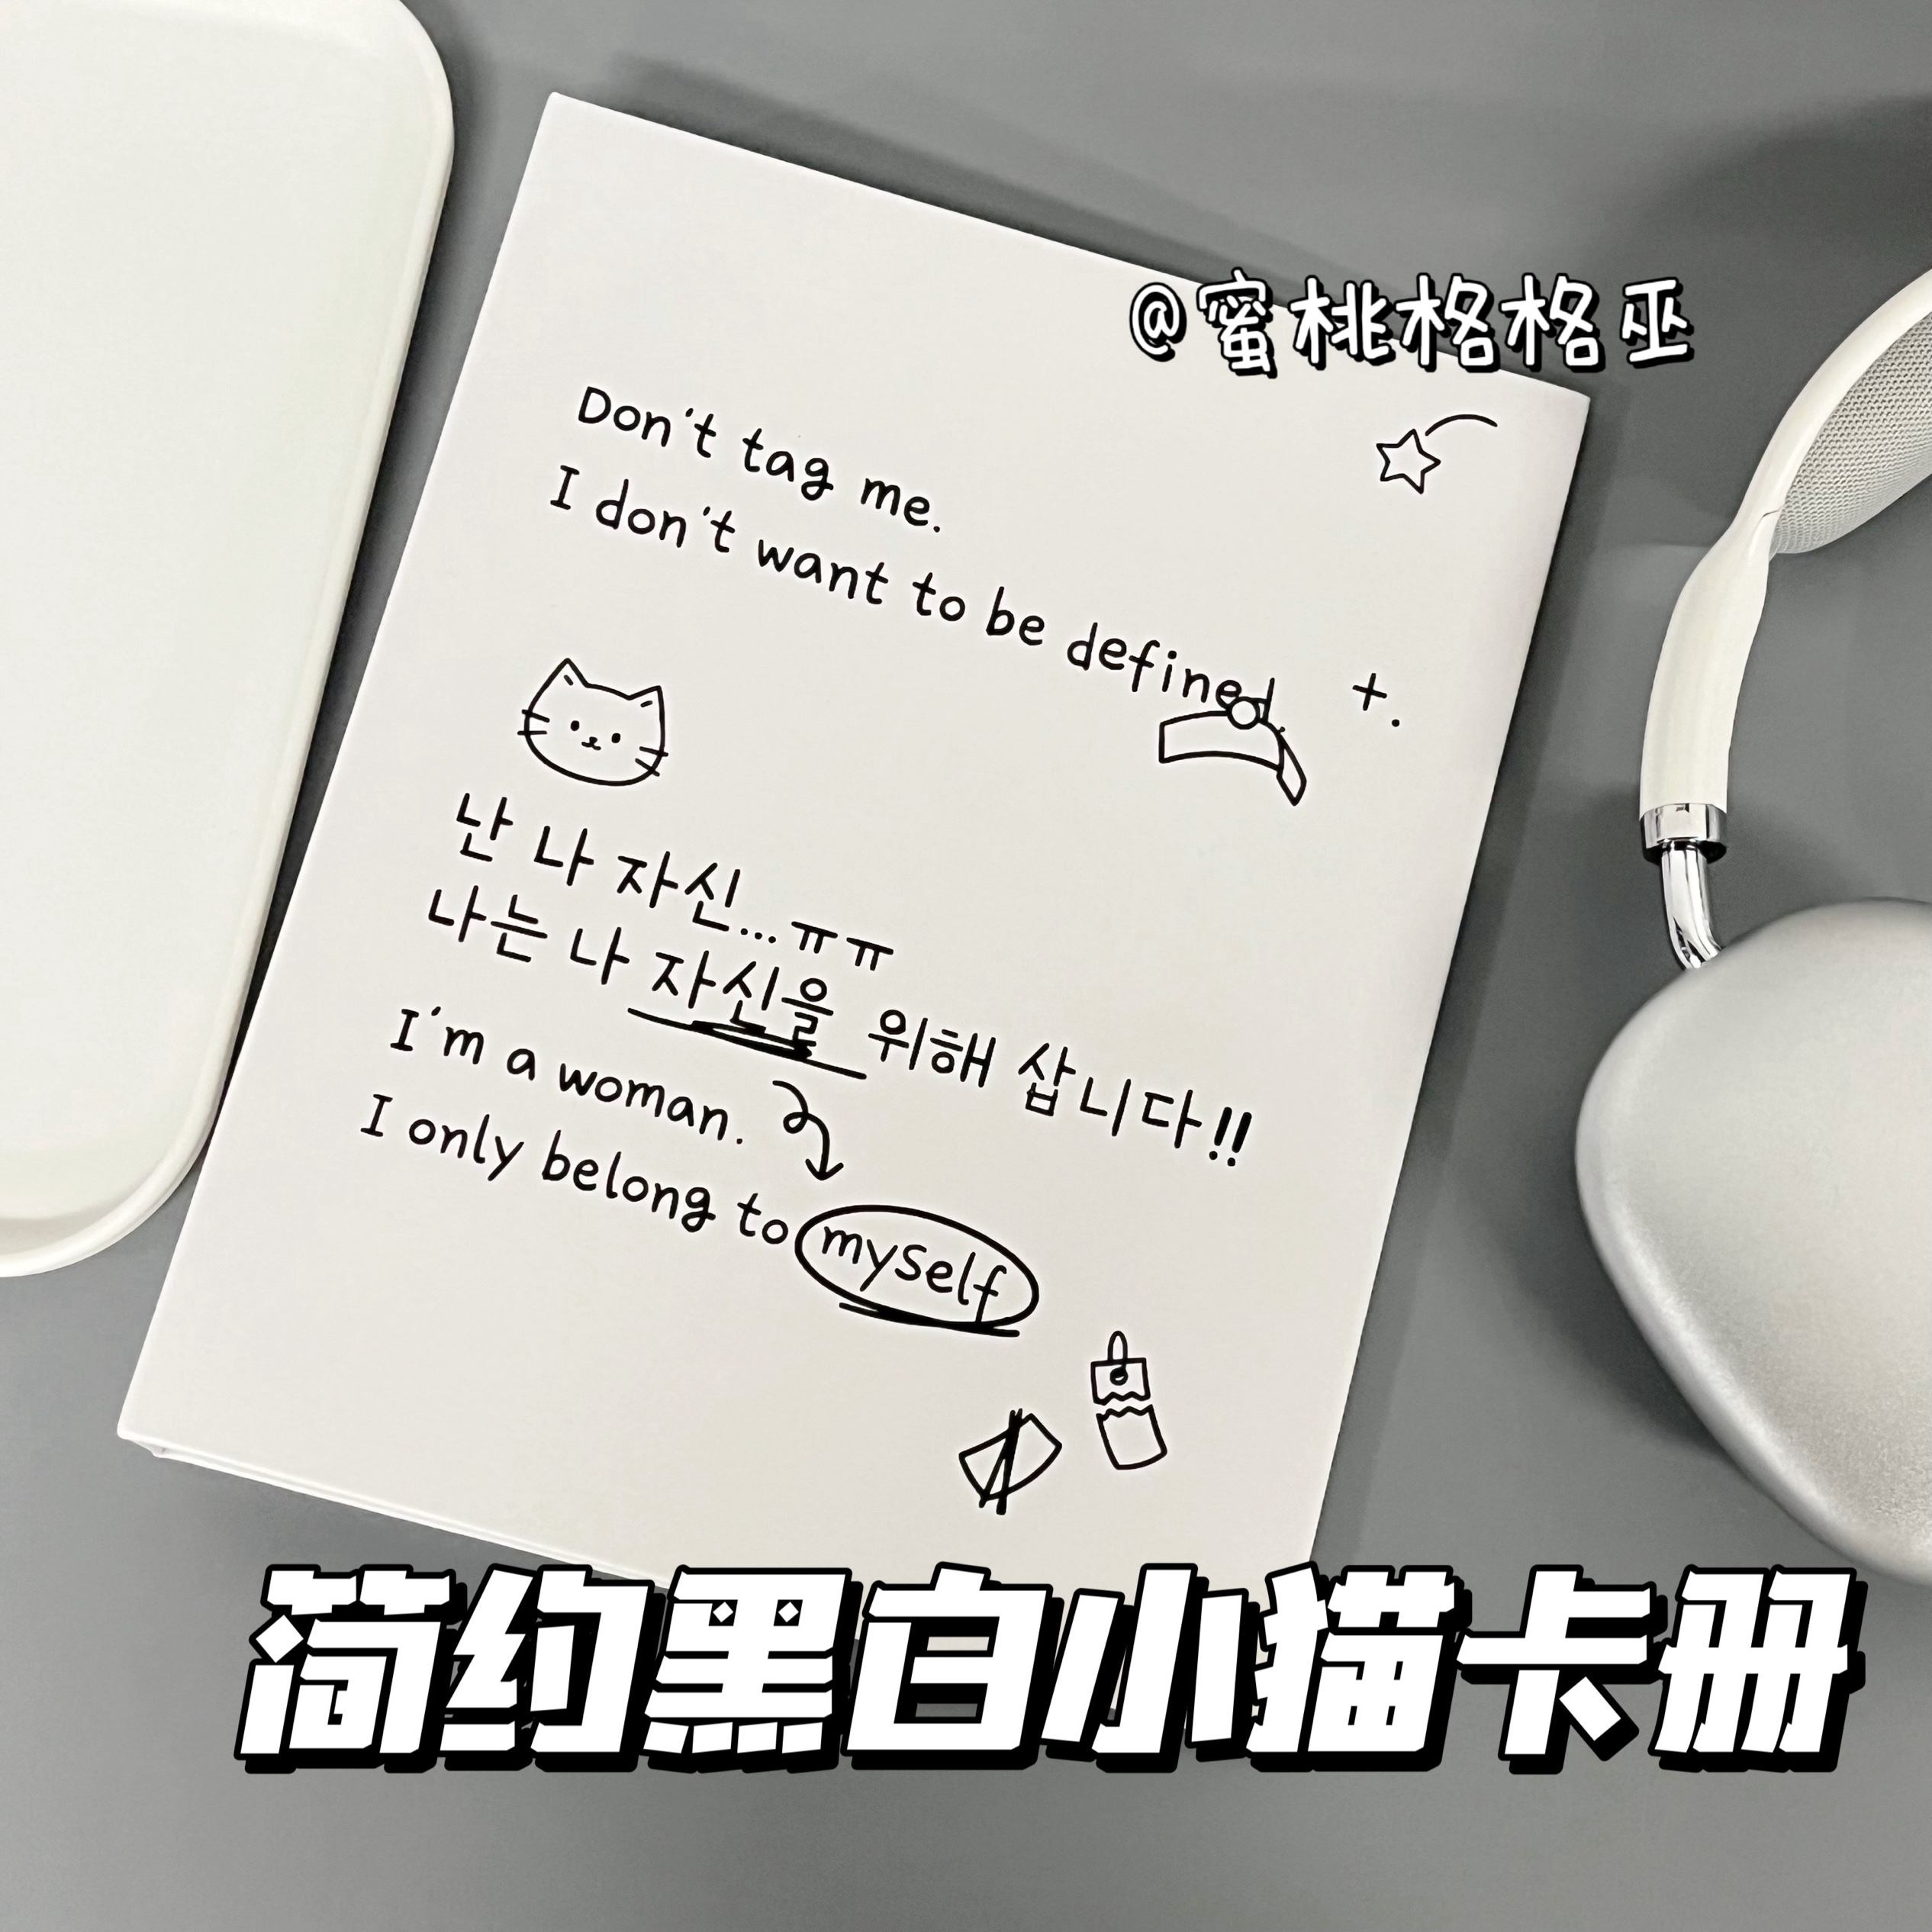 @蜜桃格格巫
Don't tag me.
I don't want to be defined.
난 나 자신...ㅠㅠ
나는 나 자신을 위해 삽니다!!
I'm a woman.
I only belong to myself
简约黑白小猫卡册